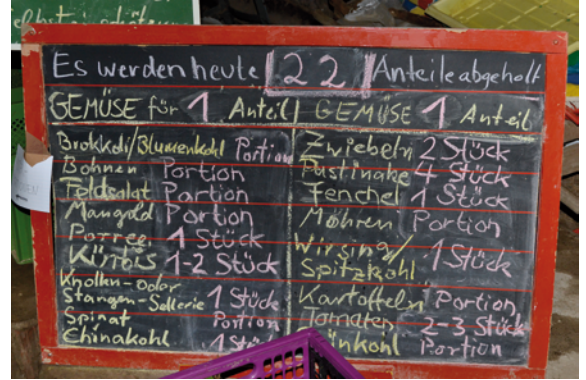 Es werden heute 22 Anteile abgeholt
GEMÜSE für 1 Anteil
Brokkoli/Blumenkohl Portion
Bohnen Portion
Feldsalat Portion
Mangold Portion
Porree 1 Stück
Kürbis 1-2 Stück
Knollen- oder
Stangen-Sellerie 1 Stück
Spinat Portion
Chinakohl 1 Stück
GEMÜSE 1 Anteil
Zwiebeln 2 Stück
Pastinake 4 Stück
Fenchel 1 Stück
Möhren Portion
Wirsing/
Spitzkohl 1 Stück
Kartoffeln Portion
Tomaten 2-3 Stück
Portion